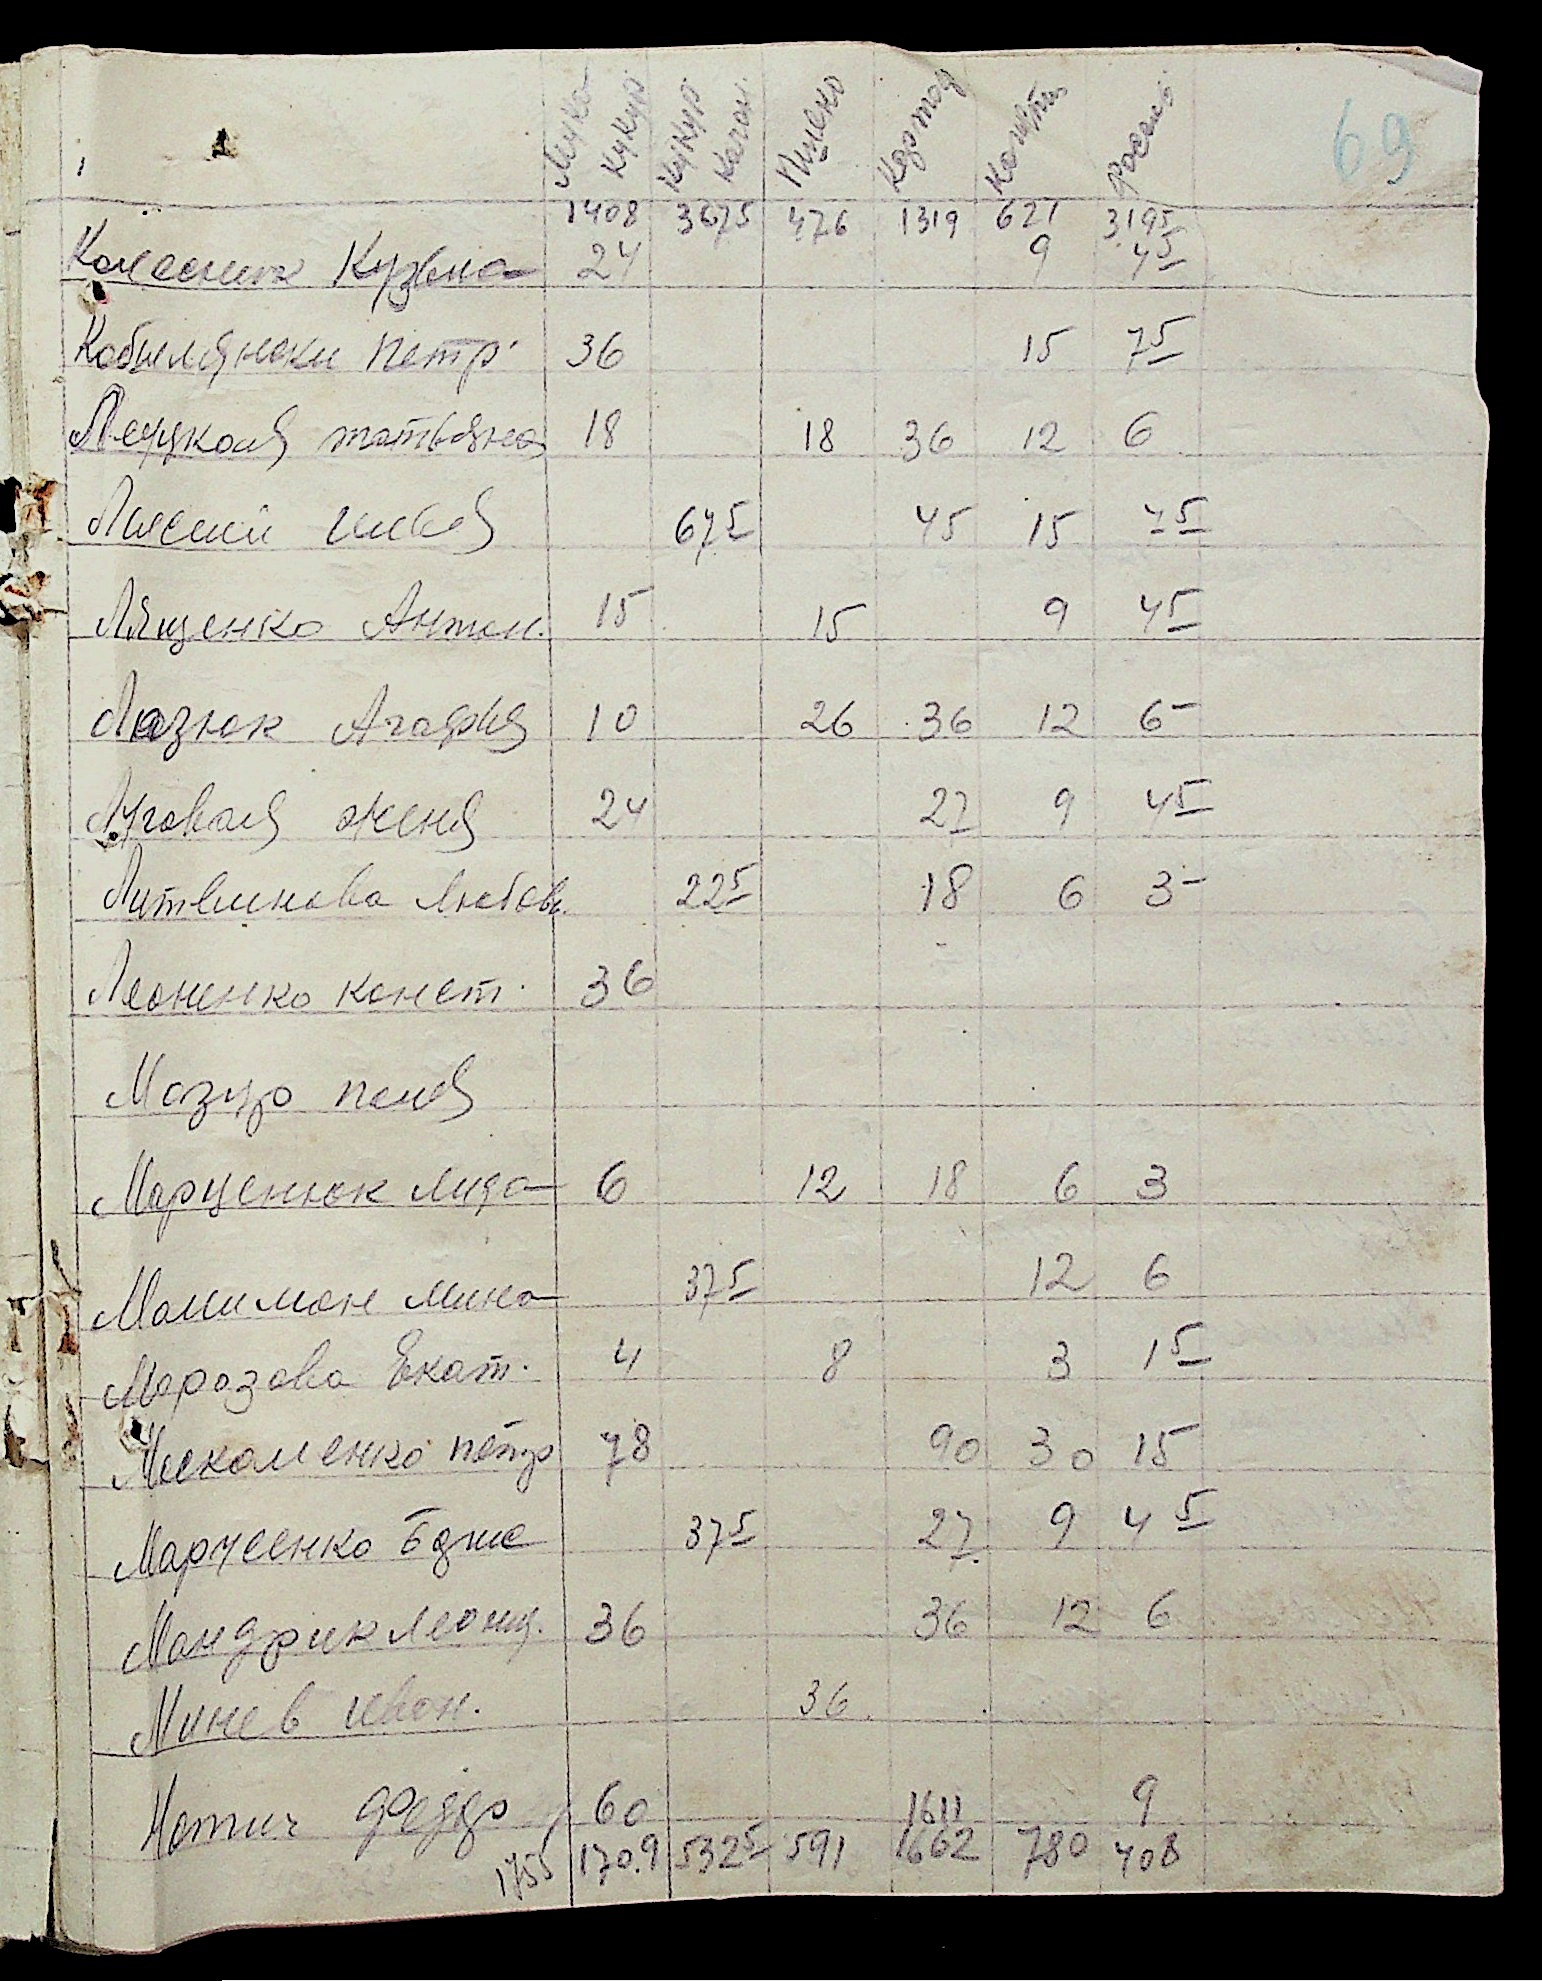 69
Мука кукур Кукур качан. Пшено Картоф Капуста Рассол
1408 3675 476 1319 621 3195
Колесник Кузьма 24 9 45
Кобылянски Петр 36 15 75
Луцкая татьяна 18 18 36 12 6
675 45 15 75
Лященко Антон. 15 15 9 45
Лазюк Агафия 10 26 36 12 6-
Луговая женя 24 27 9 45
Литвинова Любовь. 225 18 6 3-
Леоненко конст. 36
Мазур поля
Марценюк лида 6 12 18 6 3
Малиман мина 375 12 6
Морозова Екат. 4 8 3 15
Москаленко петр 78 90 30 15
Марченко 375 27. 9 45
Мандрик леонид. 36 36 12 6
Минев иван. 36
Федор 60 1611 9
1755 1709 5325 591 1662 780 408